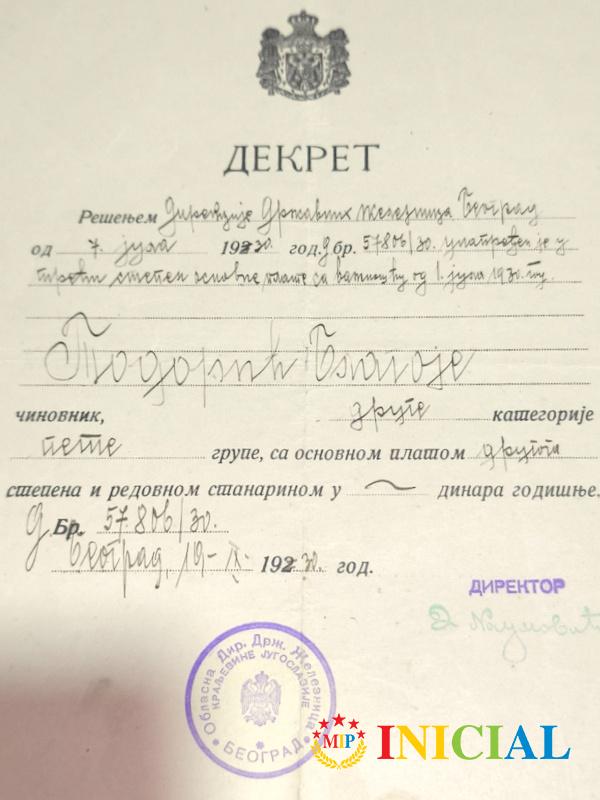 ДЕКРЕТ
Решењем Дирекције Државних Железница Београд
од 7. јула 1930. год. Д бр. 57806/30. унапређен је у
трећи степен основне плате са важношћу од 1. јула 1930. год.
Тодорић Благоје
чиновник, друге категорије
пете групе, са основном платом другога
степена и редовном станарином у ~ динара годишње.
Д Бр. 57806/30.
Београд, 19-IX- 1930. год.
ДИРЕКТОР
Обласна Дир. Држ. Железница
КРАЉЕВИНЕ ЈУГОСЛАВИЈЕ
БЕОГРАД
MIP INICIAL